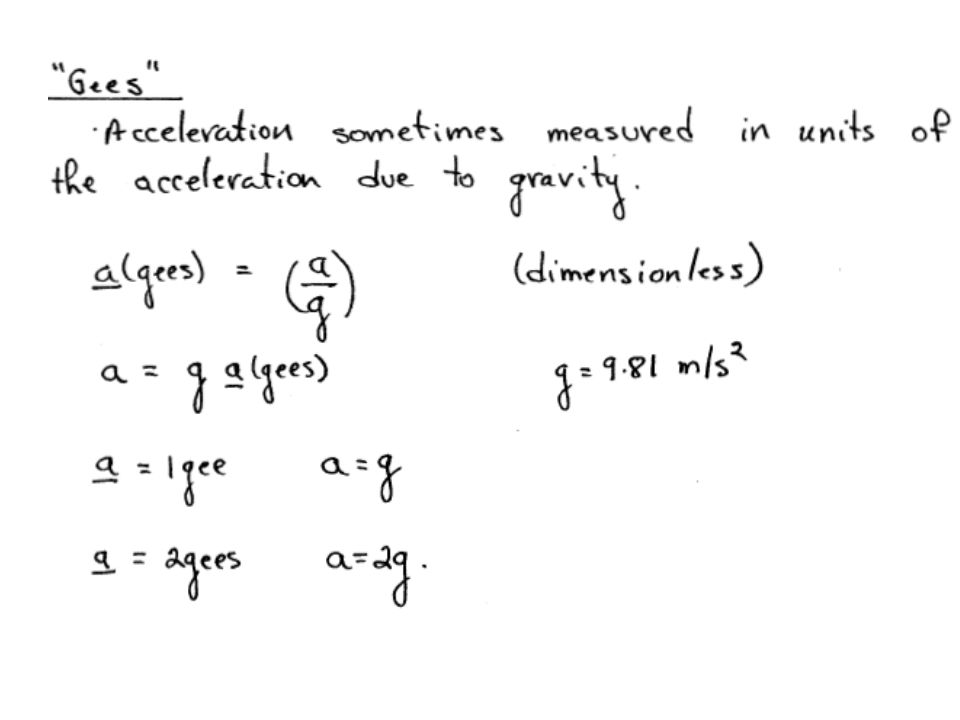 "Gees"
·Acceleration sometimes measured in units of
the acceleration due to gravity.
a(gees) = (a/g) (dimensionless)
a = g a(gees) g = 9.81 m/s²
a = 1gee a = g
a = 2gees a = 2g.